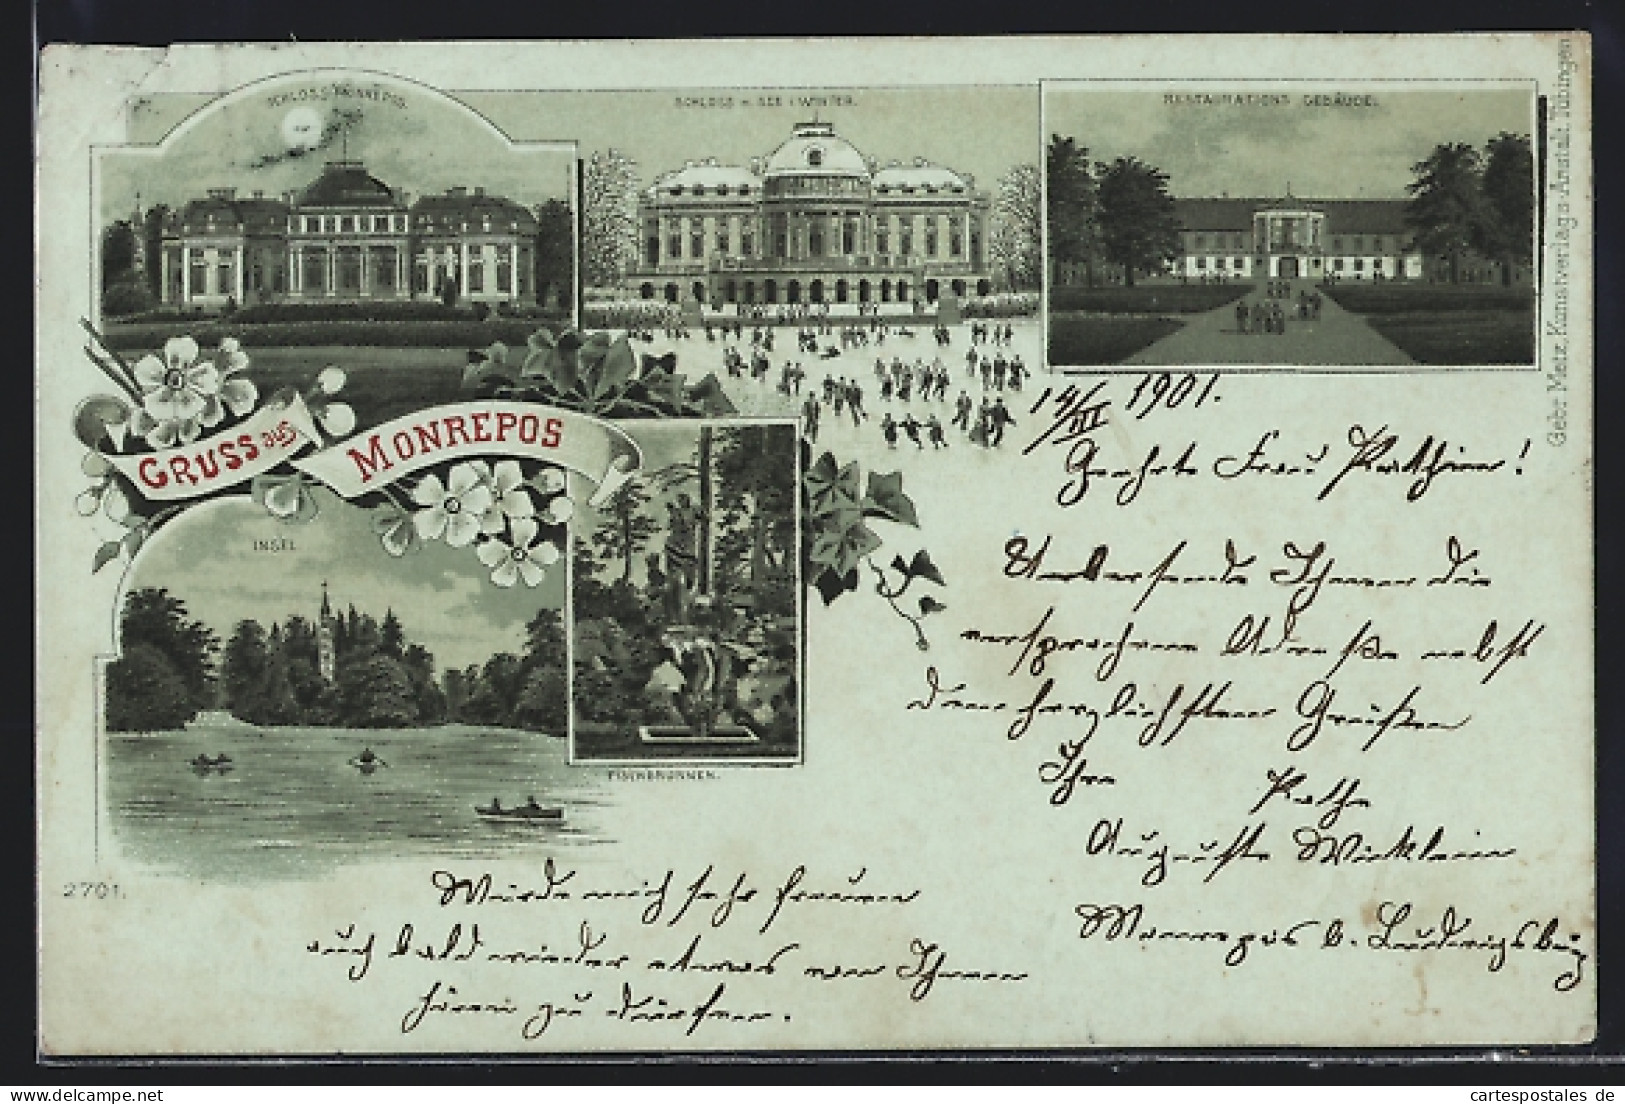 SCHLOSS MONREPOS.
SCHLOSS u. SEE i. WINTER.
RESTAURATIONS GEBÄUDE.
Gebr Metz, Kunstverlags-Anstalt, Tübingen
GRUSS aus
MONREPOS
INSEL
FISCHBRUNNEN.
2701.
14/III 1901.
Geehrte Frau Pathin!
Uebersende Ihnen die
versprochene Adreße nebst
den herzlichsten Grüßen
Ihre Pathe
Auguste Wicklein
Monrepos b. Ludwigsburg
Würde mich sehr freuen
auch bald wieder etwas von Ihnen
hören zu dürfen.
cartespostales de